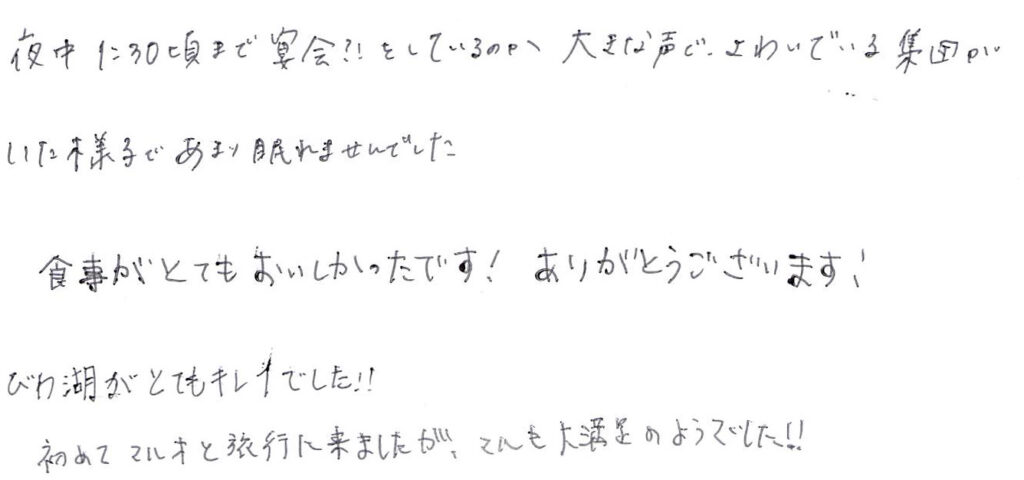 夜中 1:30頃まで宴会?!をしているのか、大きな声で、さわいでいる集団が
いた様子であまり眠れませんでした
食事がとてもおいしかったです! ありがとうございます!
びわ湖がとてもキレイでした!!
初めて マルオと旅行に来ましたが、マルも大満足のようでした!!